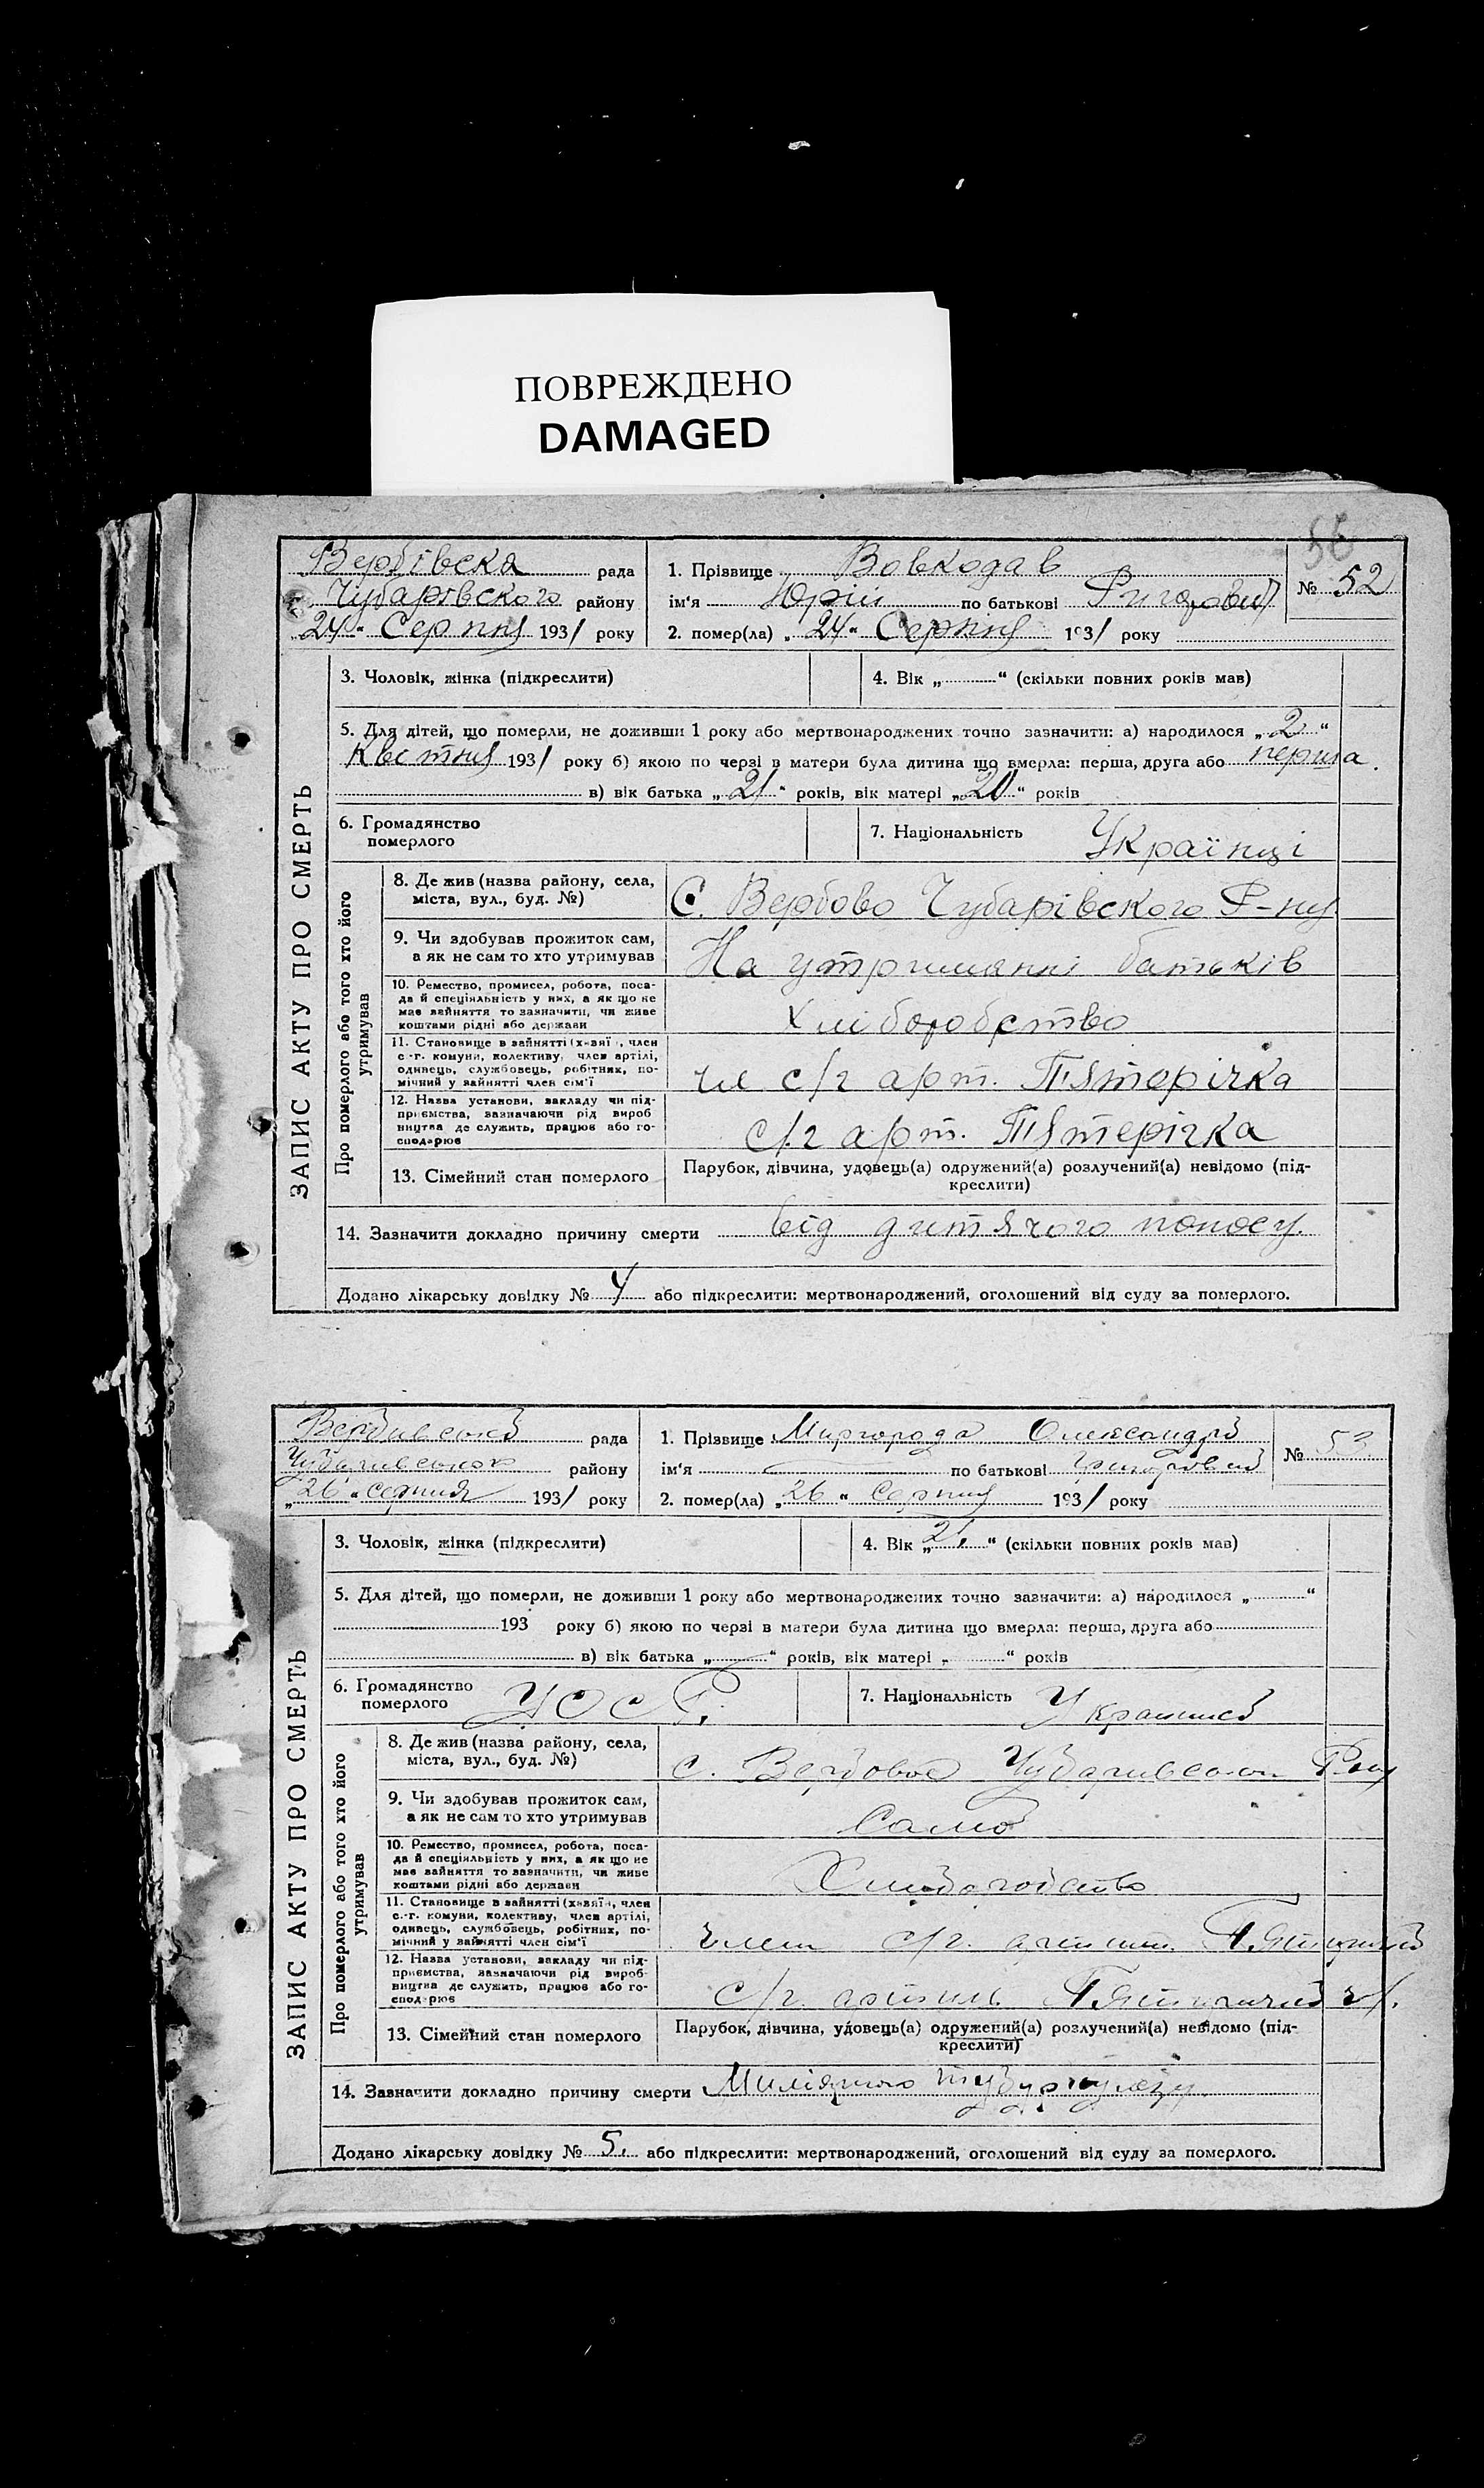 ПОВРЕЖДЕНО
DAMAGED
56
Вербівска рада
Чубарівского району
„24“ Серпня 1931 року
1. Прізвище Вовкодав
ім'я Юрій по батькові Григорович
2. помер(ла) „24“ Серпня 1931 року
№ 52
ЗАПИС АКТУ ПРО СМЕРТЬ
3. Чоловік, жінка (підкреслити)
4. Вік „ “ (скільки повних років мав)
5. Для дітей, що померли, не доживши 1 року або мертвонароджених точно зазначити: а) народилося „2“
Кветня 1931 року б) якою по черзі в матери була дитина що вмерла: перша, друга або перша.
в) вік батька „21“ років, вік матері „20“ років
6. Громадянство
померлого
7. Національність Українці
Про померлого або того хто його
утримував
8. Де жив (назва району, села,
міста, вул., буд. №)
С. Вербово Чубарівского Р-ну
9. Чи здобував прожиток сам,
а як не сам то хто утримував
На утриманні батьків
10. Ремество, промисел, робота, поса-
да й спеціяльність у них, а як що не
має вайняття то зазначити, чи живе
коштами рідні або держави
Хліборобство
11. Становище в вайнятті (хазяї, член
с.-г. комуни, колективу, член артілі,
одинець, службовець, робітник, по-
мічний у вайнятті член сім'ї
чл с/г арт. Пятерічка
12. Назва установи, закладу чи під-
приємства, зазначаючи рід вироб
ництва де служить, працює або го-
сподарює
с/г арт. Пятерічка
13. Сімейний стан померлого
Парубок, дівчина, удовець(а) одружений(а) розлучений(а) невідомо (під-
креслити)
14. Зазначити докладно причину смерти від дитячого поносу.
Додано лікарську довідку № 4 або підкреслити: мертвонароджений, оголошений від суду за померлого.
рада
району
„26“ серпня 1931 року
1. Прізвище Миргорода Олександра
ім'я по батькові
2. помер(ла) „26“ Серпня 1931 року
№ 53
ЗАПИС АКТУ ПРО СМЕРТЬ
3. Чоловік, жінка (підкреслити)
4. Вік „21.“ (скільки повних років мав)
5. Для дітей, що померли, не доживши 1 року або мертвонароджених точно зазначити: а) народилося „ “
193 року б) якою по черзі в матери була дитина що вмерла: перша, друга або
в) вік батька „ “ років, вік матері „ “ років
6. Громадянство
померлого
УССР.
7. Національність
Про померлого або того хто його
утримував
8. Де жив (назва району, села,
міста, вул., буд. №)
с.
9. Чи здобував прожиток сам,
а як не сам то хто утримував
Само
10. Ремество, промисел, робота, поса-
да й спеціяльність у них, а як що не
має вайняття то зазначити, чи живе
коштами рідні або держави
11. Становище в вайнятті (хазяї, член
с.-г. комуни, колективу, член артілі,
одинець, службовець, робітник, по-
мічний у вайнятті член сім'ї
член с/г.
12. Назва установи, закладу чи під-
приємства, зазначаючи рід вироб-
ництва де служить, працює або го-
сподарює
с/г.
13. Сімейний стан померлого
Парубок, дівчина, удовець(а) одружений(а) розлучений(а) невідомо (під-
креслити)
14. Зазначити докладно причину смерти Миліярного туберкулезу.
Додано лікарську довідку № 5. або підкреслити: мертвонароджений, оголошений від суду за померлого.